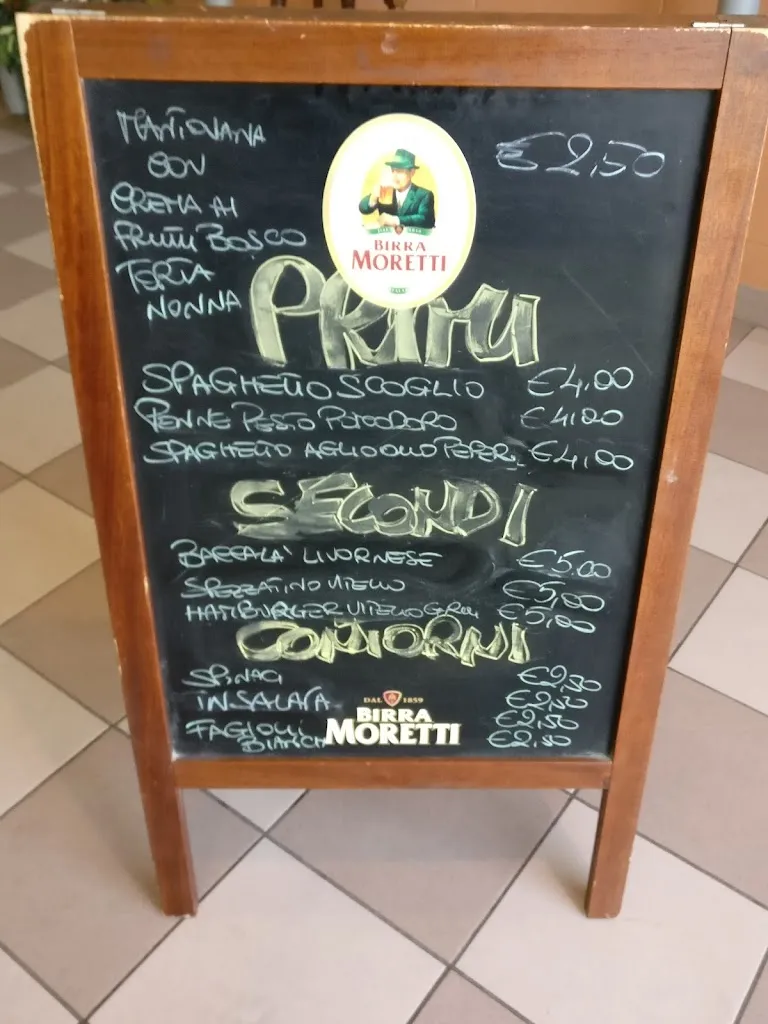 MANTOVANA € 2,50
CON
CREMA AI
FRUTTI BOSCO
TORTA
NONNA
BIRRA
MORETTI
PRIMI
SPAGHETTO SCOGLIO € 4,00
PENNE PESTO POMODORO € 4,00
SPAGHETTO AGLIO OLIO PEPER. € 4,00
SECONDI
BACCALA' LIVORNESE € 5,00
SPEZZATINO VITELLO € 5,00
HAMBURGER VITELLO GRILL € 5,00
CONTORNI
SPINACI € 2,50
INSALATA € 2,50
FAGIOLI € 2,50
BIANCHI € 2,50
DAL 1859
BIRRA
MORETTI